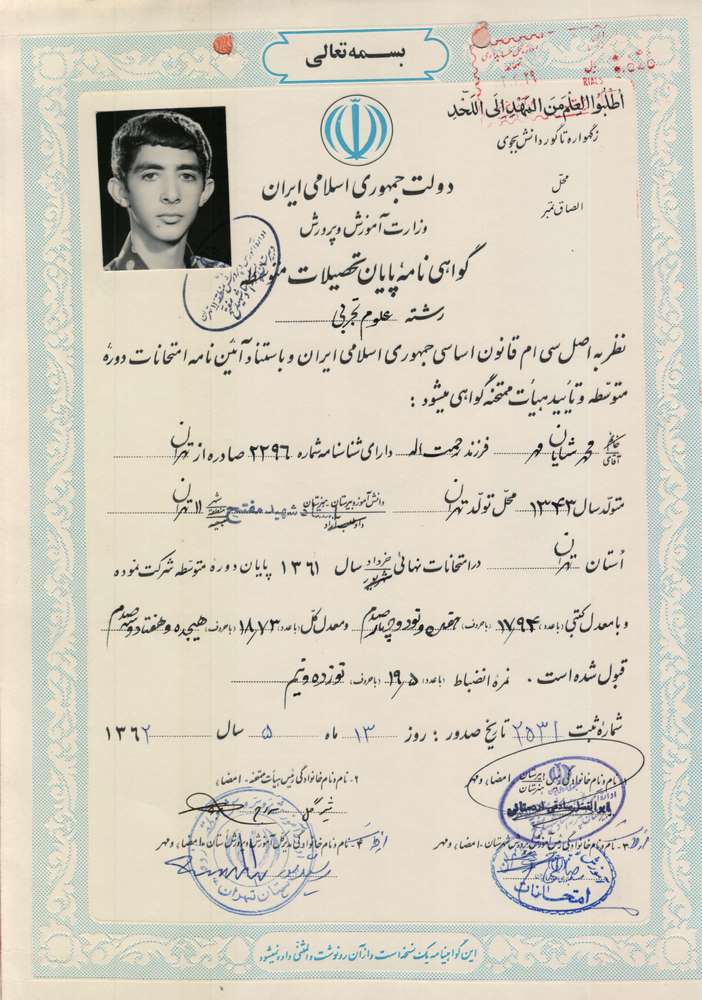 بسمه تعالی
اُطْلُبُوا العِلْمَ مِنَ المَهْدِ اِلَی اللَّحَدِ
زگهواره تا گور دانش بجوی
RIALS
محل
الصاق تمبر
دولت جمهوری اسلامی ایران
وزارت آموزش و پرورش
گواهی نامهٔ پایان تحصیلات متوسطه
رشته علوم تجربی
نظر به اصل سی ام قانون اساسی جمهوری اسلامی ایران و باستناد آئین نامه امتحانات دوره
متوسطه و تأیید هیأت ممتحنه گواهی میشود :
آقای محمد شایان مهر فرزند رحمت اله دارای شناسنامه شماره ۲۲۹۶ صادره از تهران
متولد سال ۱۳۴۳ محل تولد تهران دانش آموز دبیرستان شهید مفتح ۱۱ تهران
اُستان تهران در امتحانات نهائی خرداد شهریور سال ۱۳۶۱ پایان دوره متوسطه شرکت نموده
و با معدل کتبی (با عدد) ۱۷/۹۴ (با حروف) هفده و نود و چهار صدم و معدل کل (با عدد) ۱۸/۷۳ (با حروف) هیجده و هفتاد و سه صدم
قبول شده است . نمره انضباط (با عدد) ۱۹/۵ (با حروف) نوزده و نیم
شماره ثبت ۲۵۳۱ تاریخ صدور : روز ۱۳ ماه ۵ سال ۱۳۶۲
۱- نام و نام خانوادگی رئیس دبیرستان هنرستان امضا، و مهر
۲- نام و نام خانوادگی رئیس هیأت ممتحنه - امضا،
۳- نام و نام خانوادگی رئیس آموزش و پرورش شهرستان - امضا، و مهر
۴- نام و نام خانوادگی مدیرکل آموزش و پرورش استان - امضا، و مهر
امتحانات
استان تهران
این گواهینامه یک نسخه است و از آن رونوشت و المثنی داده نمیشود